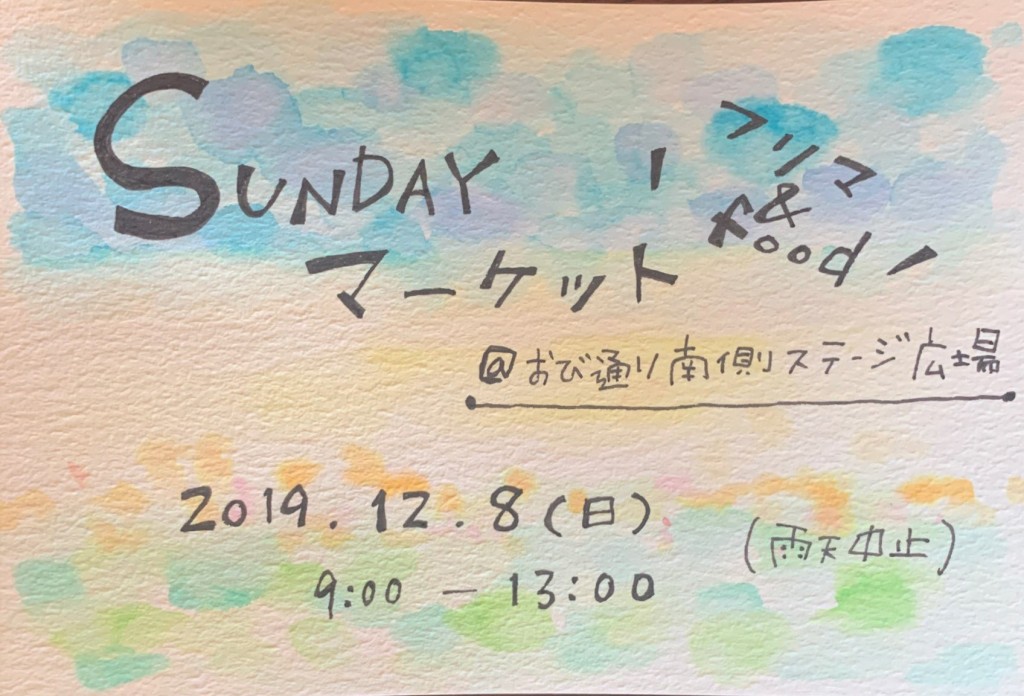 SUNDAY
マーケット
フリマ
&
food
@おび通り南側ステージ広場
2019.12.8(日)
(雨天中止)
9:00 - 13:00